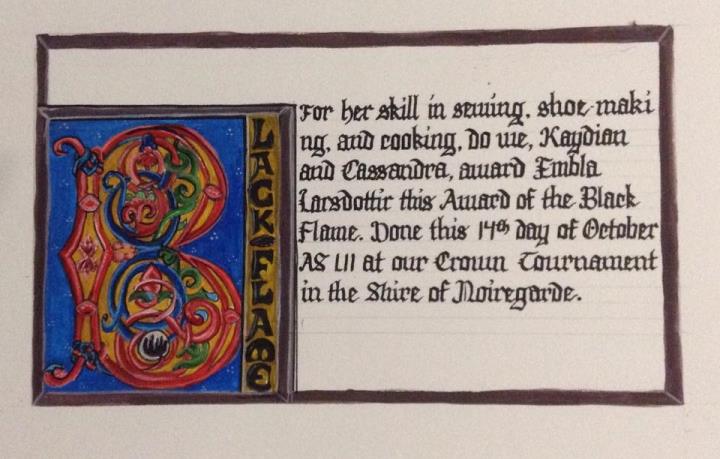 B
LACK FLAME
For her skill in sewing, shoe-maki
ng, and cooking, do we, Kaydian
and Cassandra, award Embla
Larsdottir this Award of the Black
Flame. Done this 14th day of October
AS LII at our Crown Tournament
in the Shire of Noiregarde.